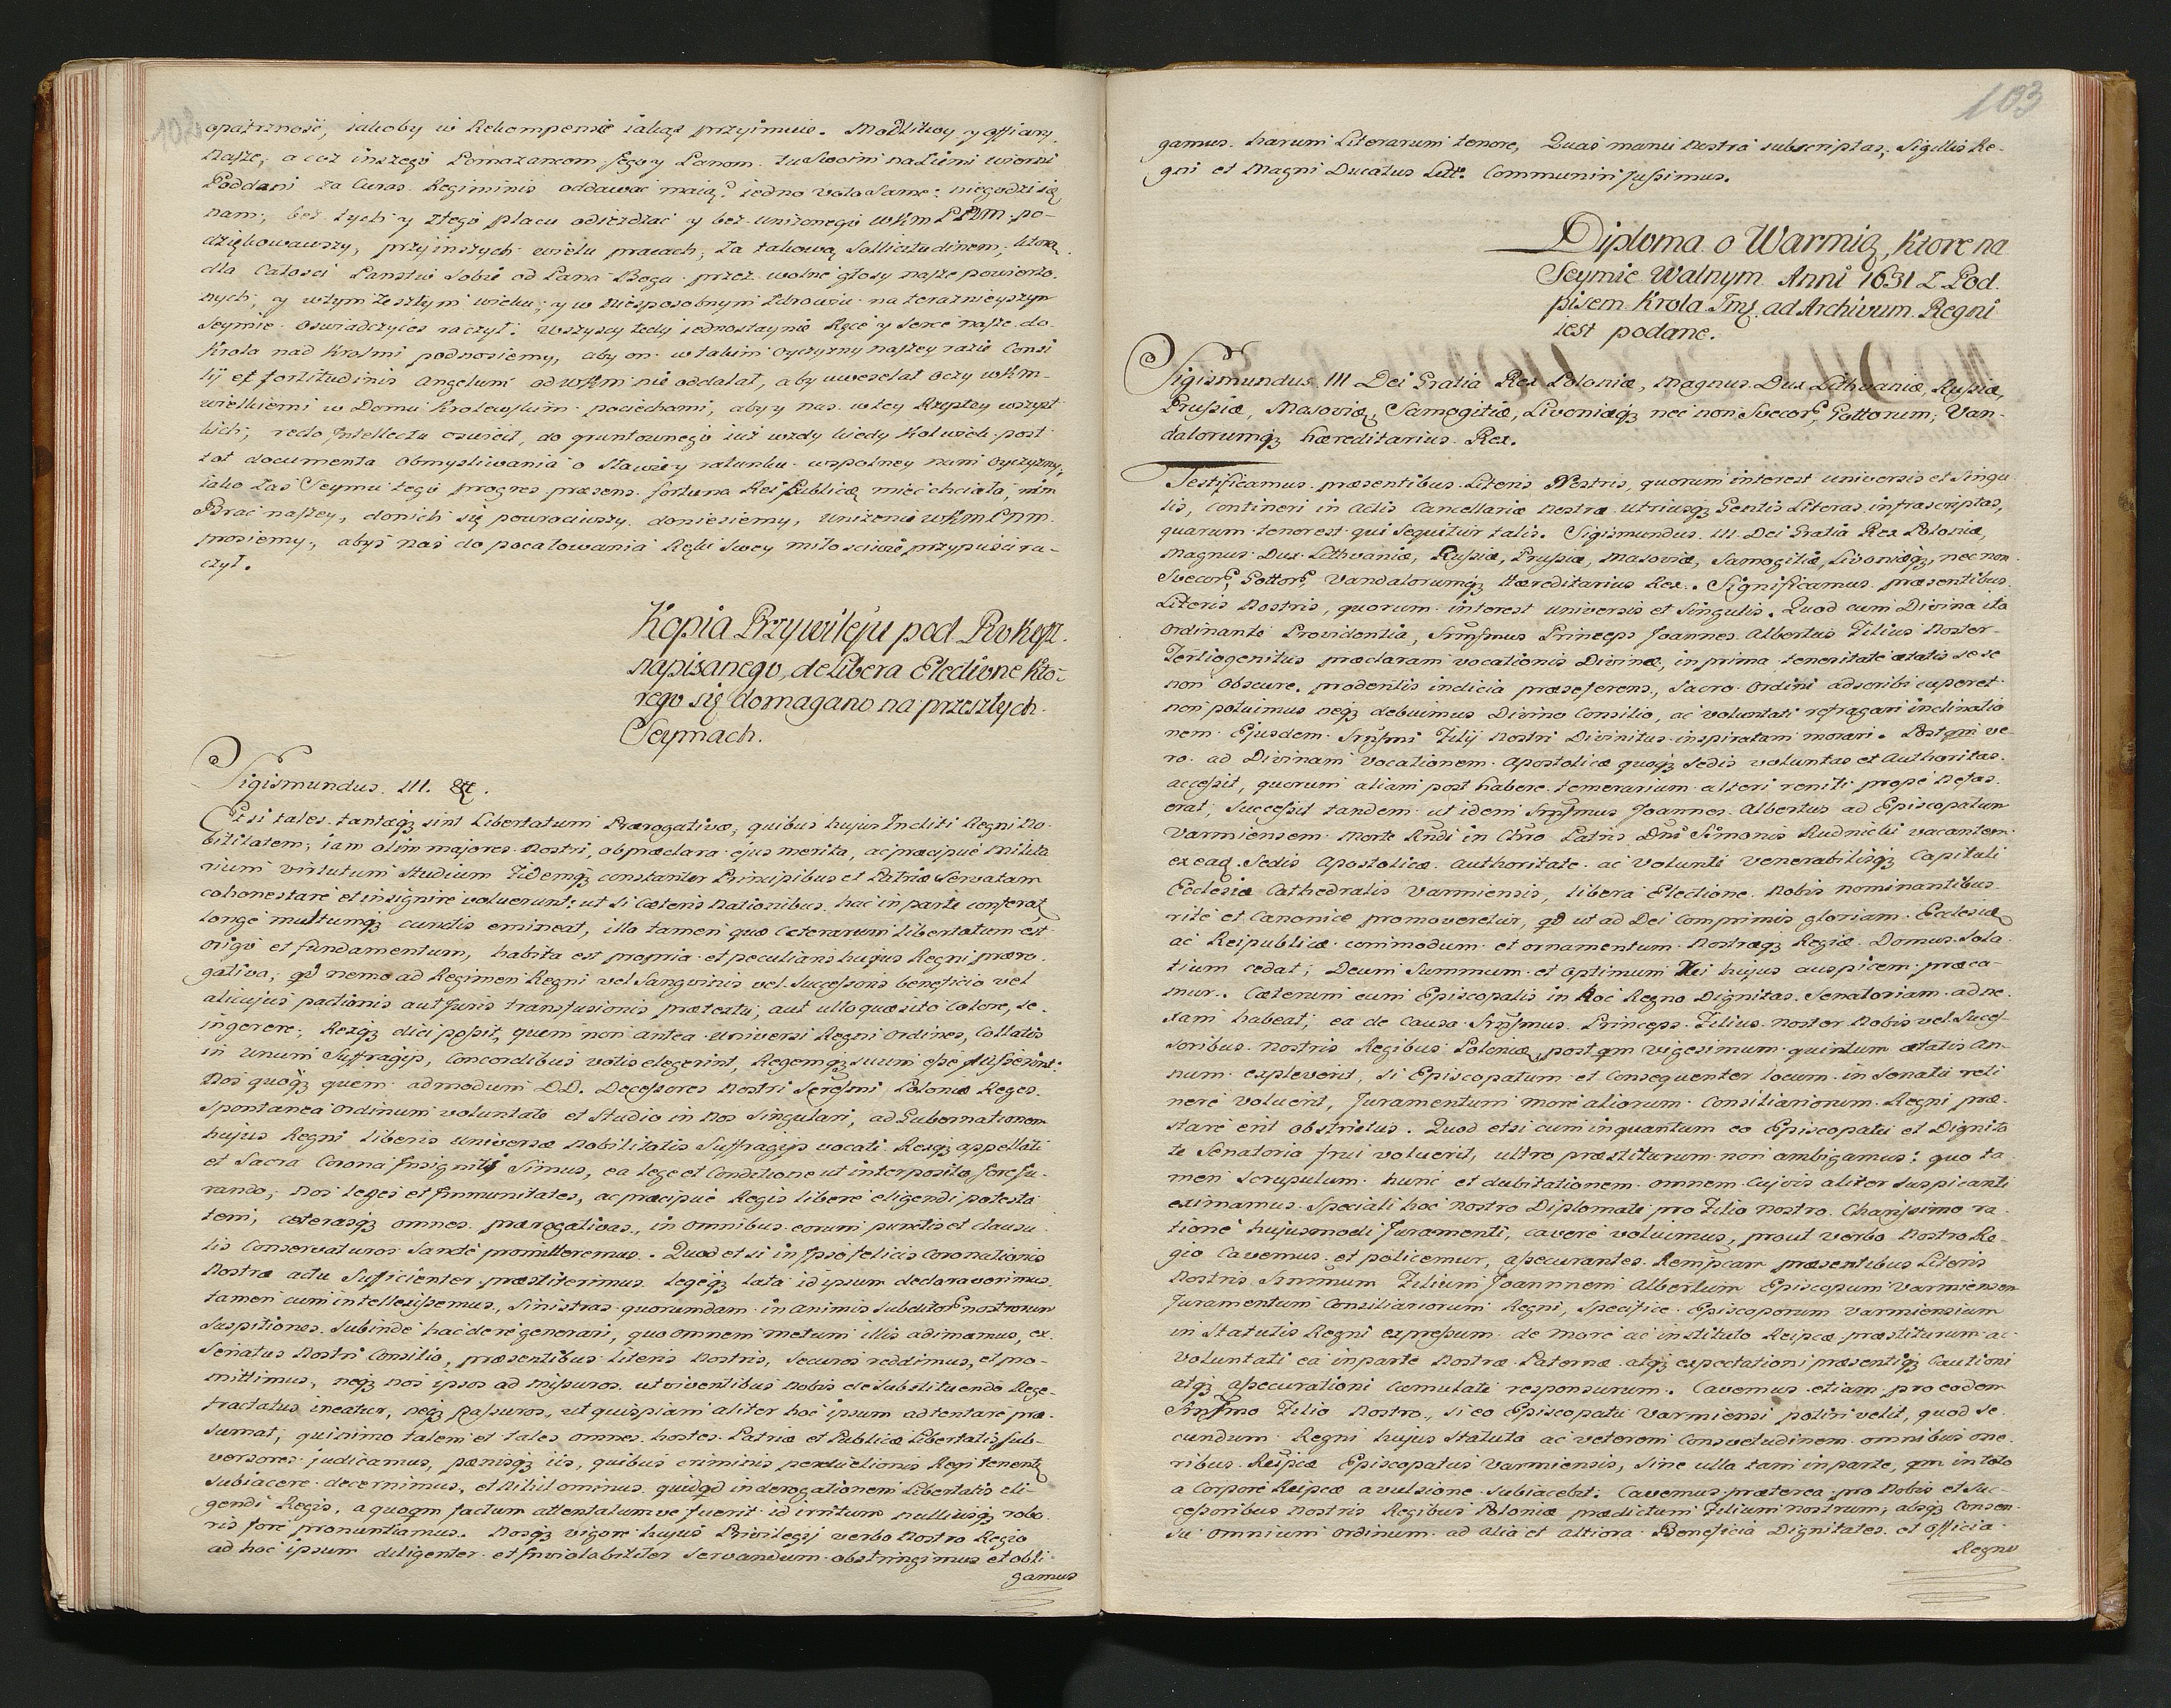 opatrzność, iakoby w Rekompensie iakąś przyimuie. Modlitwy y offiary
nasze, a coż inszego Pomazancom Jego y Panom Tu Swoim na Ziemi wierni
Poddani za Curas Regiminis oddawać maią? iedno Vota Same: niegodzi się
nam, bez tych y ztego placu odieżdżać y bez uniżonego WKM PNM. po-
dziękowawszy, przyinszych wielu pracach, Za takową Sollicitudinem, ktorą
dla Całosci Panstw Sobie od Pana Boga przez wolne głosy nasze powierzo-
nych, y wtym Zeszłym wieku, y w Niesposobnym Zdrowiu na teraznieyszym
Seymie oswiadczyies raczył: Wszyscy tedy iednostaynie Ręce y Serce nasze do
Krola nad Krolmi podnosiemy, aby on w takim oyczyzny naszey razie Consi
lij et fortitudinis Angelum od WKM nie oddalał, aby uweselał oczy WKM-
wielkiemi w Domu Krolewskim pociechami, aby y nas wtey Rzeptey wszyst
kich, recto Intellectu oswiecił, do gruntownego iuż wzdy kiedy Kolwiek post
tot documenta Obmysliwania o Sławie y ratunku wspolney nam Oyczyzny,
iako zaś Seymu tego progres præsens fortuna Rei Publicæ mieć chciała, im
Braci naszey, donich się powrociwszy doniesiemy, Uniżenie WKM PNM
prosiemy, abyś naś do pocałowania Ręki Swey miłosciwie przypuści ra-
czył.
Kopia Przywileju pod Rokosz.
napisanego, de Libera Electione Kto-
rego się domagano na przeszłych
Seymach.
Sigismundus III. &c.
Etsi tales tantæqʒ sint Libertatum Prærogativæ, quibus hujus Incliti Regni No-
bilitatem, iam olim majores Nostri, ob præclara ejus merita, ac præcipue milita
rium virtutum Studium Fidemqʒ constanter Principibus et Patriæ Servatam
cohonestare et insignire voluerunt: ut Si Cæteris Nationibus hac in parte conferat
longe multumqʒ cunctis emineat, illa tamen quæ Cæterarum libertatum est
origo et fundamentum, habita est propria et peculiaris hujus Regni præro-
gativa, qd nemo ad Regimen Regni vel Sangvinis vel Successoris beneficio vel
alicujus pactionis aut Juris transfusionis prætextu, aut ullo quæsito Colore, se
ingerere, Rexqʒ dici possit, quem non antea Universi Regni Ordines, Collatis
in unum Suffragijs, Concordibus votis elegerint, Regemqʒ suum esse jusserint:
Nos quoqʒ quem admodum DD. Decessores Nostri Serēsmi Poloniæ Reges
Spontanea Ordinum voluntate et Studio in Nos Singulari, ad Gubernationem
hujus Regni liberis universæ Nobilitatis Suffragijs vocati Rexqʒ appellati
et Sacra Corona Insigniti Simus, ea lege et Conditione ut interposito Jureju-
rando, Nos leges et Immunitates, ac præcipue Regis libere eligendi potesta
tem, cæterasqʒ omnes prærogativas, in omnibus eorum punctis et clausu
lis Conservaturos Sancte promitteremus. Quod et si in Ipso felicis Coronationis
Nostræ actu Sufficienter præstiterimus legeqʒ lata id ipsum declaraverimus
tamen cum intellexissemus, Sinistras quorumdam in animis Subditor. nostrorum
Suspitiones Subinde hac de re generari, quo omnem metum illis adimamus, ex
Senatus Nostri Consilio, præsentibus literis Nostris, Securos reddimus, et pro-
mittimus, neqʒ nos ipsos ad missuros ut viventibus Nobis de Substituendo Rege
tractatus ineatur, neqʒ passuros, ut quispiam aliter hoc ipsum adtentare præ-
sumat, quinimo talem et tales omnes hostes Patriæ et Publicæ Libertatis Sub-
versores judicamus, pænisqʒ iis, quibus criminis perduelionis Regi tenent
Subiacere decernimus, et Nihil ominus quidqd in derogationem Libertatis eli-
gendi Regis, a quoqm factum attentatumve fuerit id irritum nulliusqʒ robo-
ris fore pronuntiamus. Nosqʒ vigore hujus Privilegij verbo Nostro Regio
ad hoc ipsum diligenter et Inviolabiliter Servandum obstringimus et obli
gamus
103
gamus harum Literarum tenore, Quas manu Nostra subscriptas, Sigillis Re-
gni et Magni Ducatus Litt. Communiri Jussimus.
Diploma o Warmią, Ktore na
Seymie Walnym Anni 1631 Z Pod
pisem Krola Jmś. ad Archivum Regni
iest podane.
Sigismundus III Dei Gratia Rex Poloniæ, Magnus Dux Lithvaniæ, Russiæ,
Prussiæ, Masoviæ, Samogitiæ, Livoniæqʒ nec non Svecor. Gottorum, Van-
dalorumqʒ hæreditarius Rex.
Testificamus præsentibus Literis Nostris, quorum interest universis et Singu
lis, contineri in Actis Cancellariæ Nostræ utriusqʒ Gentis Literas infrascriptas,
quarum tenor est qui Sequitur talis. Sigismundus III Dei Gratia Rex Poloniæ,
Magnus Dux Lithvaniæ, Russiæ, Prussiæ, Masoviæ, Samogitiæ, Livoniæqʒ, nec non
Svecor. Gottor. Vandalorumqʒ Hæreditarius Rex. Significamus præsentibus
Literis Nostris, quorum interest universis et Singulis. Quod cum Divina ita
Ordinante Providentia, Srnssmus Princeps Joannes Albertus Filius Noster
Tertiogenitus præclaram vocationis Divinæ, in prima teneritate ætatis se se
non Obscure prodentis indicia præseferens, Sacro Ordini adscribi cuperet
non potuimus neqʒ debuimus Divino Consilio, ac voluntati refragari inclinatio
nem Ejusdem Srnssmi Filij Nostri Divinitus inspiratam morari. Postqm ve
ro ad Divinam vocationem Apostolicæ quoqʒ Sedis voluntas et Authoritas
accessit, quorum aliam post habere temerarium alteri reniti prope Nefas
erat, Successit tandem ut idem Srnssmus Joannes Albertus ad Episcopatum
Varmiensem Morte Rndi in Chro Patris Dni Simonis Rudnicki vacantem
ex eaq Sedis Apostolicæ Authoritate ac Volunte venerabilisqʒ Capituli
Ecclesiæ Cathedralis Varmiensis, libera Electione Nobis nominantibus
rite et Canonice promoveretur, qd ut ad Dei Comprimis gloriam Ecclesiæ
ac Reipublicæ commodum et ornamentum Nostræqʒ Regiæ Domus Sola
tium cedat, Deum Summum et optimum Rei hujus auspicem preca-
mur. Cæterum cum Episcopalis in hoc Regno Dignitas Senatoriam adne
xam habeat, ea de causa Srnssmus Princeps Filius noster Nobis vel Suces-
soribus Nostris Regibus Poloniæ, postqm vigesimum quintum ætatis An-
num expleverit, si Episcopatum et Consequenter locum in Senatu reti
nere voluerit, Juramentum more aliorum Consiliariorum Regni præ-
stare erit obstrictus. Quod etsi cum inquantum eo Episcopatu et Dignita
te Senatoria frui voluerit, ultro præstiturum non ambigamus: quo ta
men Scrupulum hunc et dubitationem omnem cujvis aliter Suspicanti
eximamus Speciali hoc nostro Diplomate pro Filio nostro Charissimo ra
tione hujusmodi Juramenti, cavere voluimus, prout verbo Nostro Re-
gio Cavemus et policemur, assecurantes Rempcam præsentibus Literis
Nostris Srnmum Filium Joannnem Albertum Episcopum Varmiensem
Juramentum Consiliariorum Regni, Specifice Episcoporum Varmiensium
in Statutis Regni expressum de more ac instituto Reipcæ præstiturum ac
Voluntati ea inparte Nostræ Paternæ atqʒ expectationi præsentiqʒ Cautioni
atqʒ assecurationi Cumulate responsurum. Cavemus etiam pro eodem
Srnssmo Filio Nostro, si eo Episcopatu Varmiensi potiri velit, quod se
cundum Regni hujus Statuta ac veterem Consvetudinem omnibus one
ribus Reipcæ Episcopatus Varmiensis, Sine ulla tam inparte, qm in toto
a Corpore Reipcæ avulsione Subiacebit: Cavemus præterea pro Nobis et Suc-
cessoribus Nostris Regibus Poloniæ prædictum Filium nostrum, absqʒ Consen-
su omnium Ordinum ad alia et altiora Beneficia Dignitates et officia
Regno